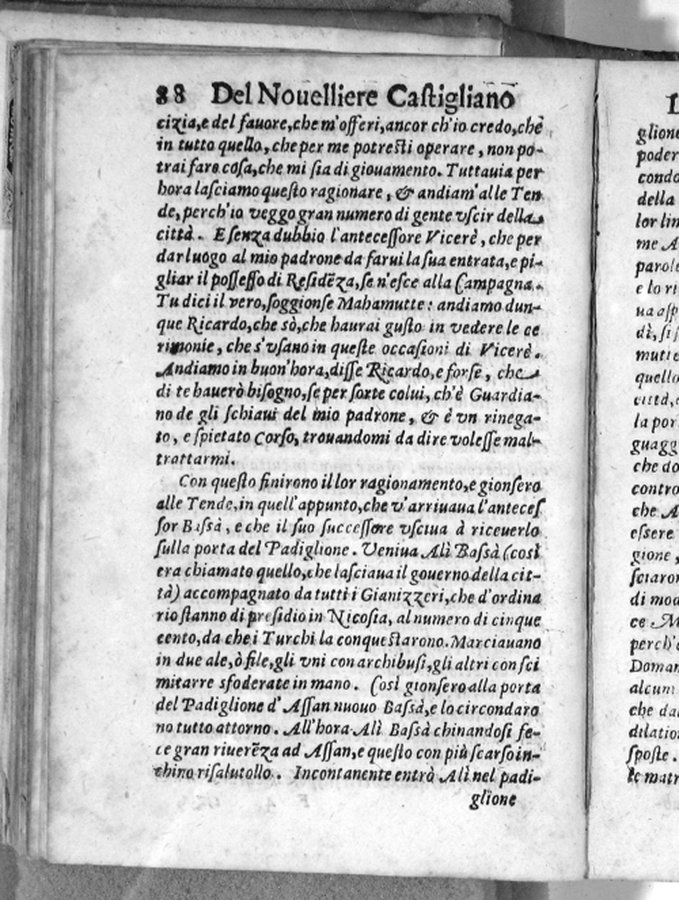 88 Del Nouelliere Castigliano
cizia, e del fauore, che m'offeri, ancor ch'io credo, che
in tutto quello, che per me potresti operare, non po-
trai fare cosa, che mi sia di giouamento. Tuttauia per
hora lasciamo questo ragionare, & andiam' alle Ten
de, perch'io veggo gran numero di gente vscir della
città. E senza dubbio l'antecessore Vicerè, che per
dar luogo al mio padrone da farui la sua entrata, e pi-
gliar il possesso di Residẽza, se n'esce alla Campagna.
Tu dici il vero, soggionse Mahamutte: andiamo dun-
que Ricardo, che sò, che haurai gusto in vedere le ce
rimonie, che s'vsano in queste occasioni di Vicerè.
Andiamo in buon'hora, disse Ricardo, e forse, che
di te hauerò bisogno, se per sorte colui, ch'è Guardia-
no de gli schiaui del mio padrone, & è vn rinega-
to, e spietato Corso, trouandomi da dire volesse mal-
trattarmi.
Con questo finirono il lor ragionamento, e gionsero
alle Tende, in quell'appunto, che v'arriuaua l'anteces
sor Bassà, e che il suo successore vsciua à riceuerlo
sulla porta del Padiglione. Veniua Alì Bassà (così
era chiamato quello, che lasciaua il gouerno della cit-
tà) accompagnato da tutti i Gianizzeri, che d'ordina
rio stanno di presidio in Nicosia, al numero di cinque
cento, da che i Turchi la conquestarono. Marciauano
in due ale, ò file, gli vni con archibusi, gli altri con sci
mitarre sfoderate in mano. Così gionsero alla porta
del Padiglione d'Assan nuouo Bassà, e lo circondaro
no tutto attorno. All'hora Alì Bassà chinandosi fe-
ce gran riuerẽza ad Assan, e questo con più scarso in-
chino risalutollo. Incontanente entrò Alì nel padi-
glione
glione
poder
condo
della
lor lin
me A
parole
e lo ri
ua asp
dì, si s
mutte
quello
città, e
la por
guagg
che do
contro
che A
essere
gione,
sciaron
di mod
ce M
perch'e
Doman
alcuni
che dal
dilation
sposte.
le matr